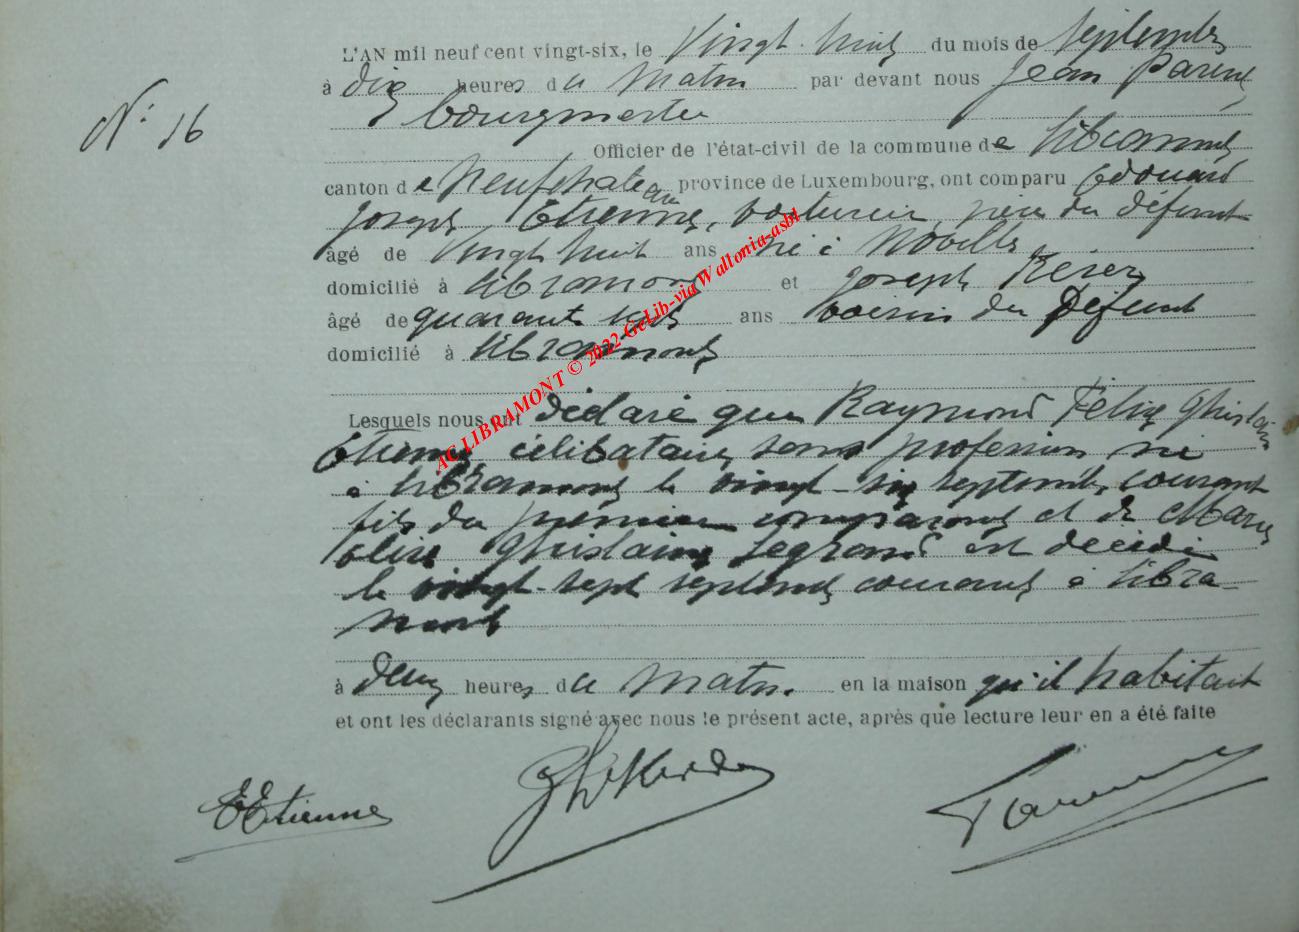 L'AN mil neuf cent vingt-six, le vingt-huit du mois de septembre
à dix heures du matin par devant nous Jean Parent
bourgmestre
N° 16
Officier de l'état-civil de la commune de Libramont
canton de Neufchateau province de Luxembourg, ont comparu Edouard
Joseph Etienne, voiturier, père du défunt
âgé de vingt huit ans né à Noville
domicilié à Libramont et Joseph
âgé de quarante ans voisin du Défunt
domicilié à Libramont
AC LIBRAMONT © 2022 GeLib-via Wallonia-asbl
Lesquels nous ont déclaré que Raymond Félix Ghislain
Etienne célibataire, sans profession né
à Libramont le vingt-six septembre courant
fils du premier comparant et de Marie
élise Ghislaine Legrand est décédé
le vingt-sept septembre courant à Libra-
mont
à deux heures du matin. en la maison qu'il habitait
et ont les déclarants signé avec nous le présent acte, après que lecture leur en a été faite
EEtienne Parent